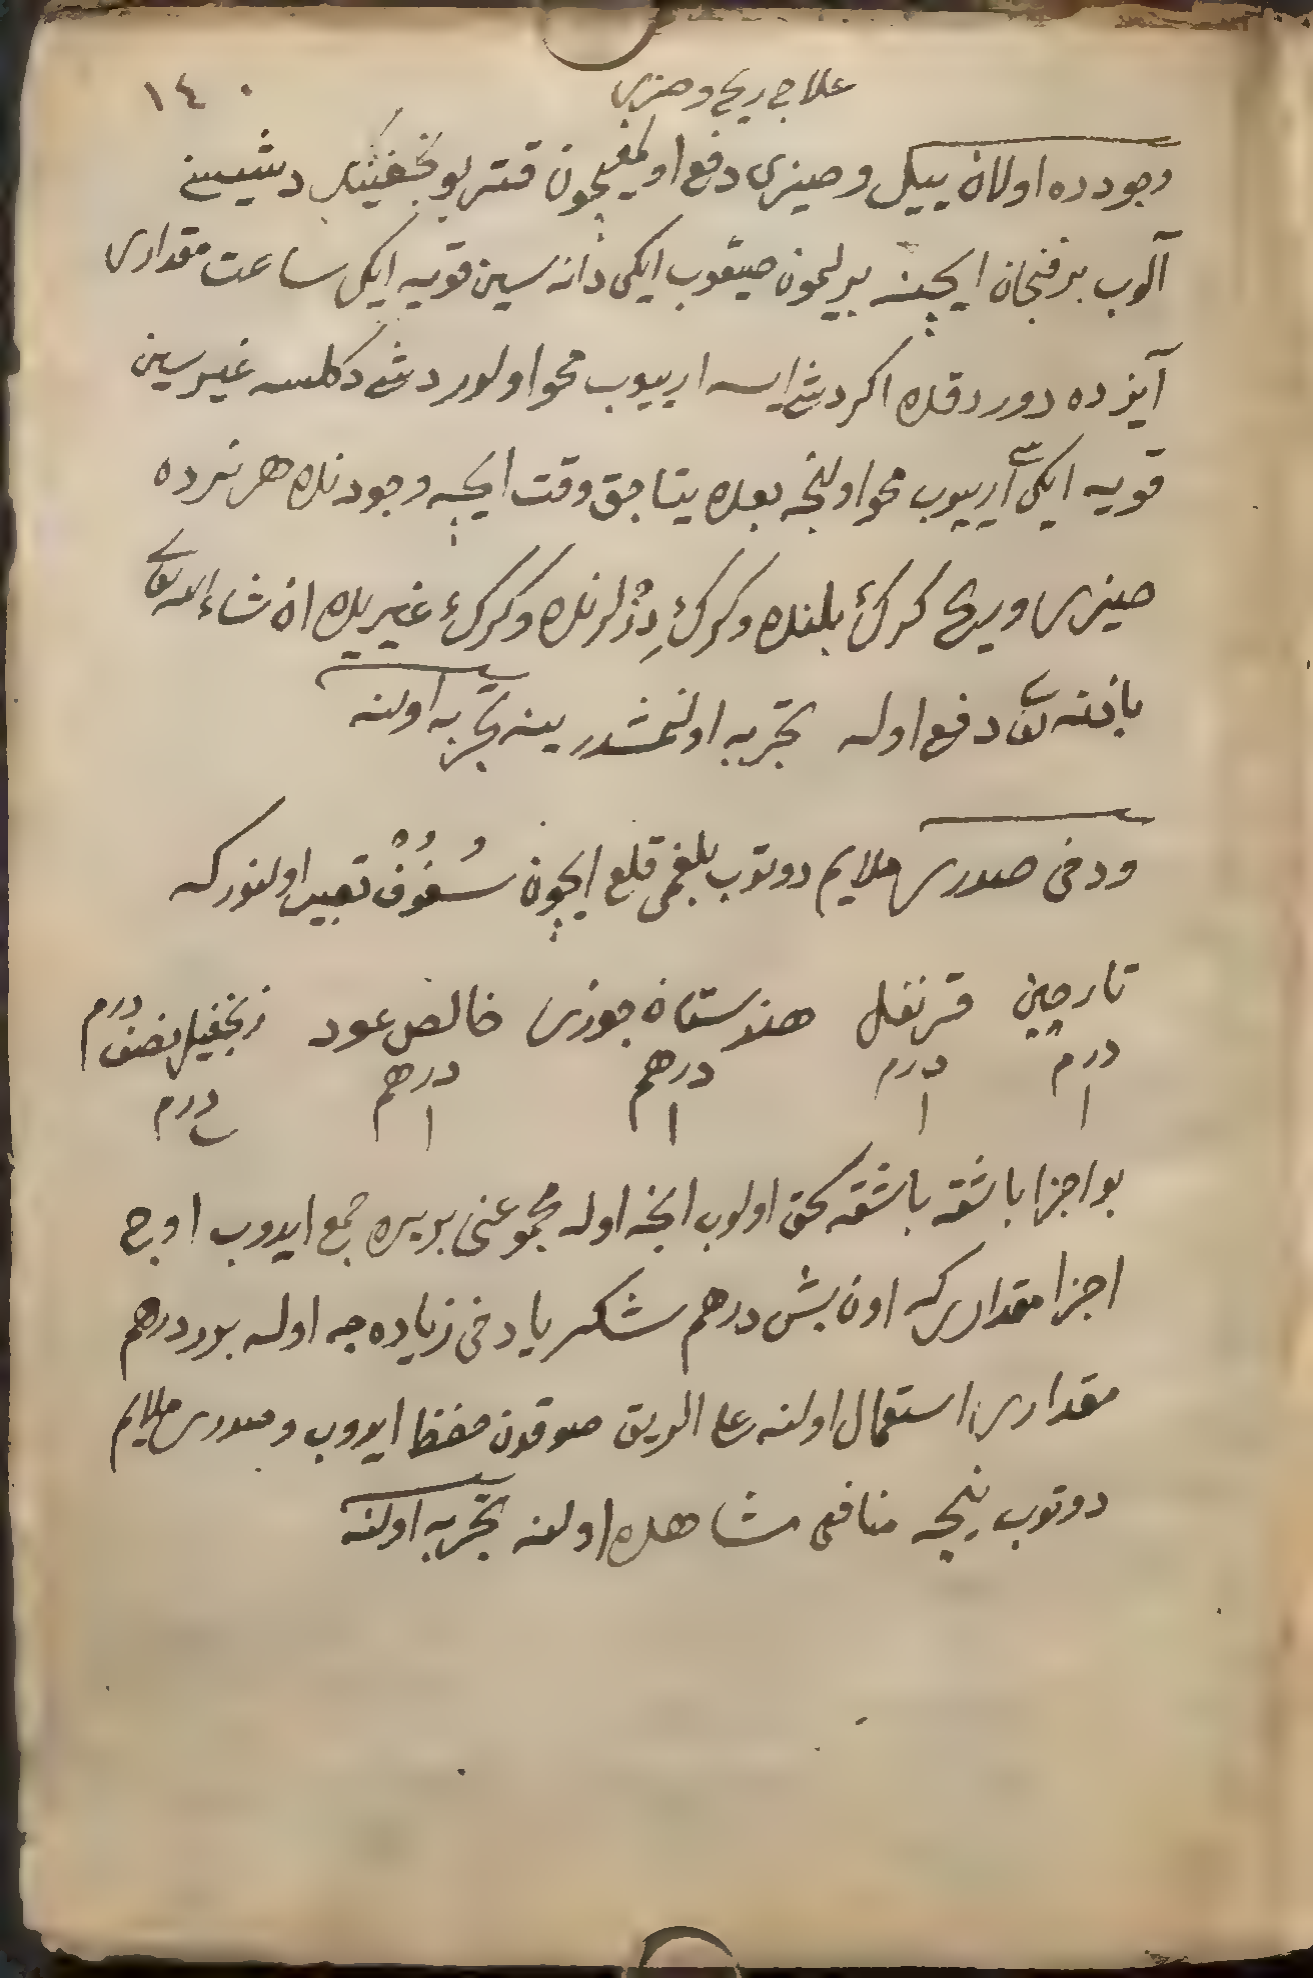 علاج ريح و صنزى
١٤٠
وجودده اولان ييل و صنزى دفع اولمغيچون قتر بوخفينك ديشيسنى
آلوب بر فنجان ايچنه بر ليمون صيقوب ايكى دانه سين قويه ايكى ساعت مقدارى
آنزده دوردقده اكر ديشى ايسه اريوب محو اولور ديشى دكلسه غيرسين
قويه ايكيسى اريوب محو اولنجه بعده يتاجق وقت ايچه وجودنده هر نرده
صنزى و ريح كرك بلنده و كرك دزلرنده و كرك غيريده ان شاء الله تعالى
باذنه تعالى دفع اوله تجربه اولنمشدر ينه تجربه اولنه
ودخى صدرى ملايم دوتوب بلغمى قلع ايچون سُفُوفْ تعبير اولنور كه
تارچين قرنفل هندستان جوزى خالص عود زنجفيل نصف درم
درم ١ درم ١ درهم ١ درهم ١ درم
بو اجزا باشقه باشقه سحق اولوب انجه اوله مجموعنى بر يره جمع ايدوب اوچ
اجزا مقدارى كه اون بش درهم شكر يا دخى زياده جه اوله بورد درهم
مقدارى استعمال اولنه على الريق صوقدن حفظ ايدوب و صدرى ملايم
دوتوب نيجه منافعى مشاهده اولنه تجربه اولنه